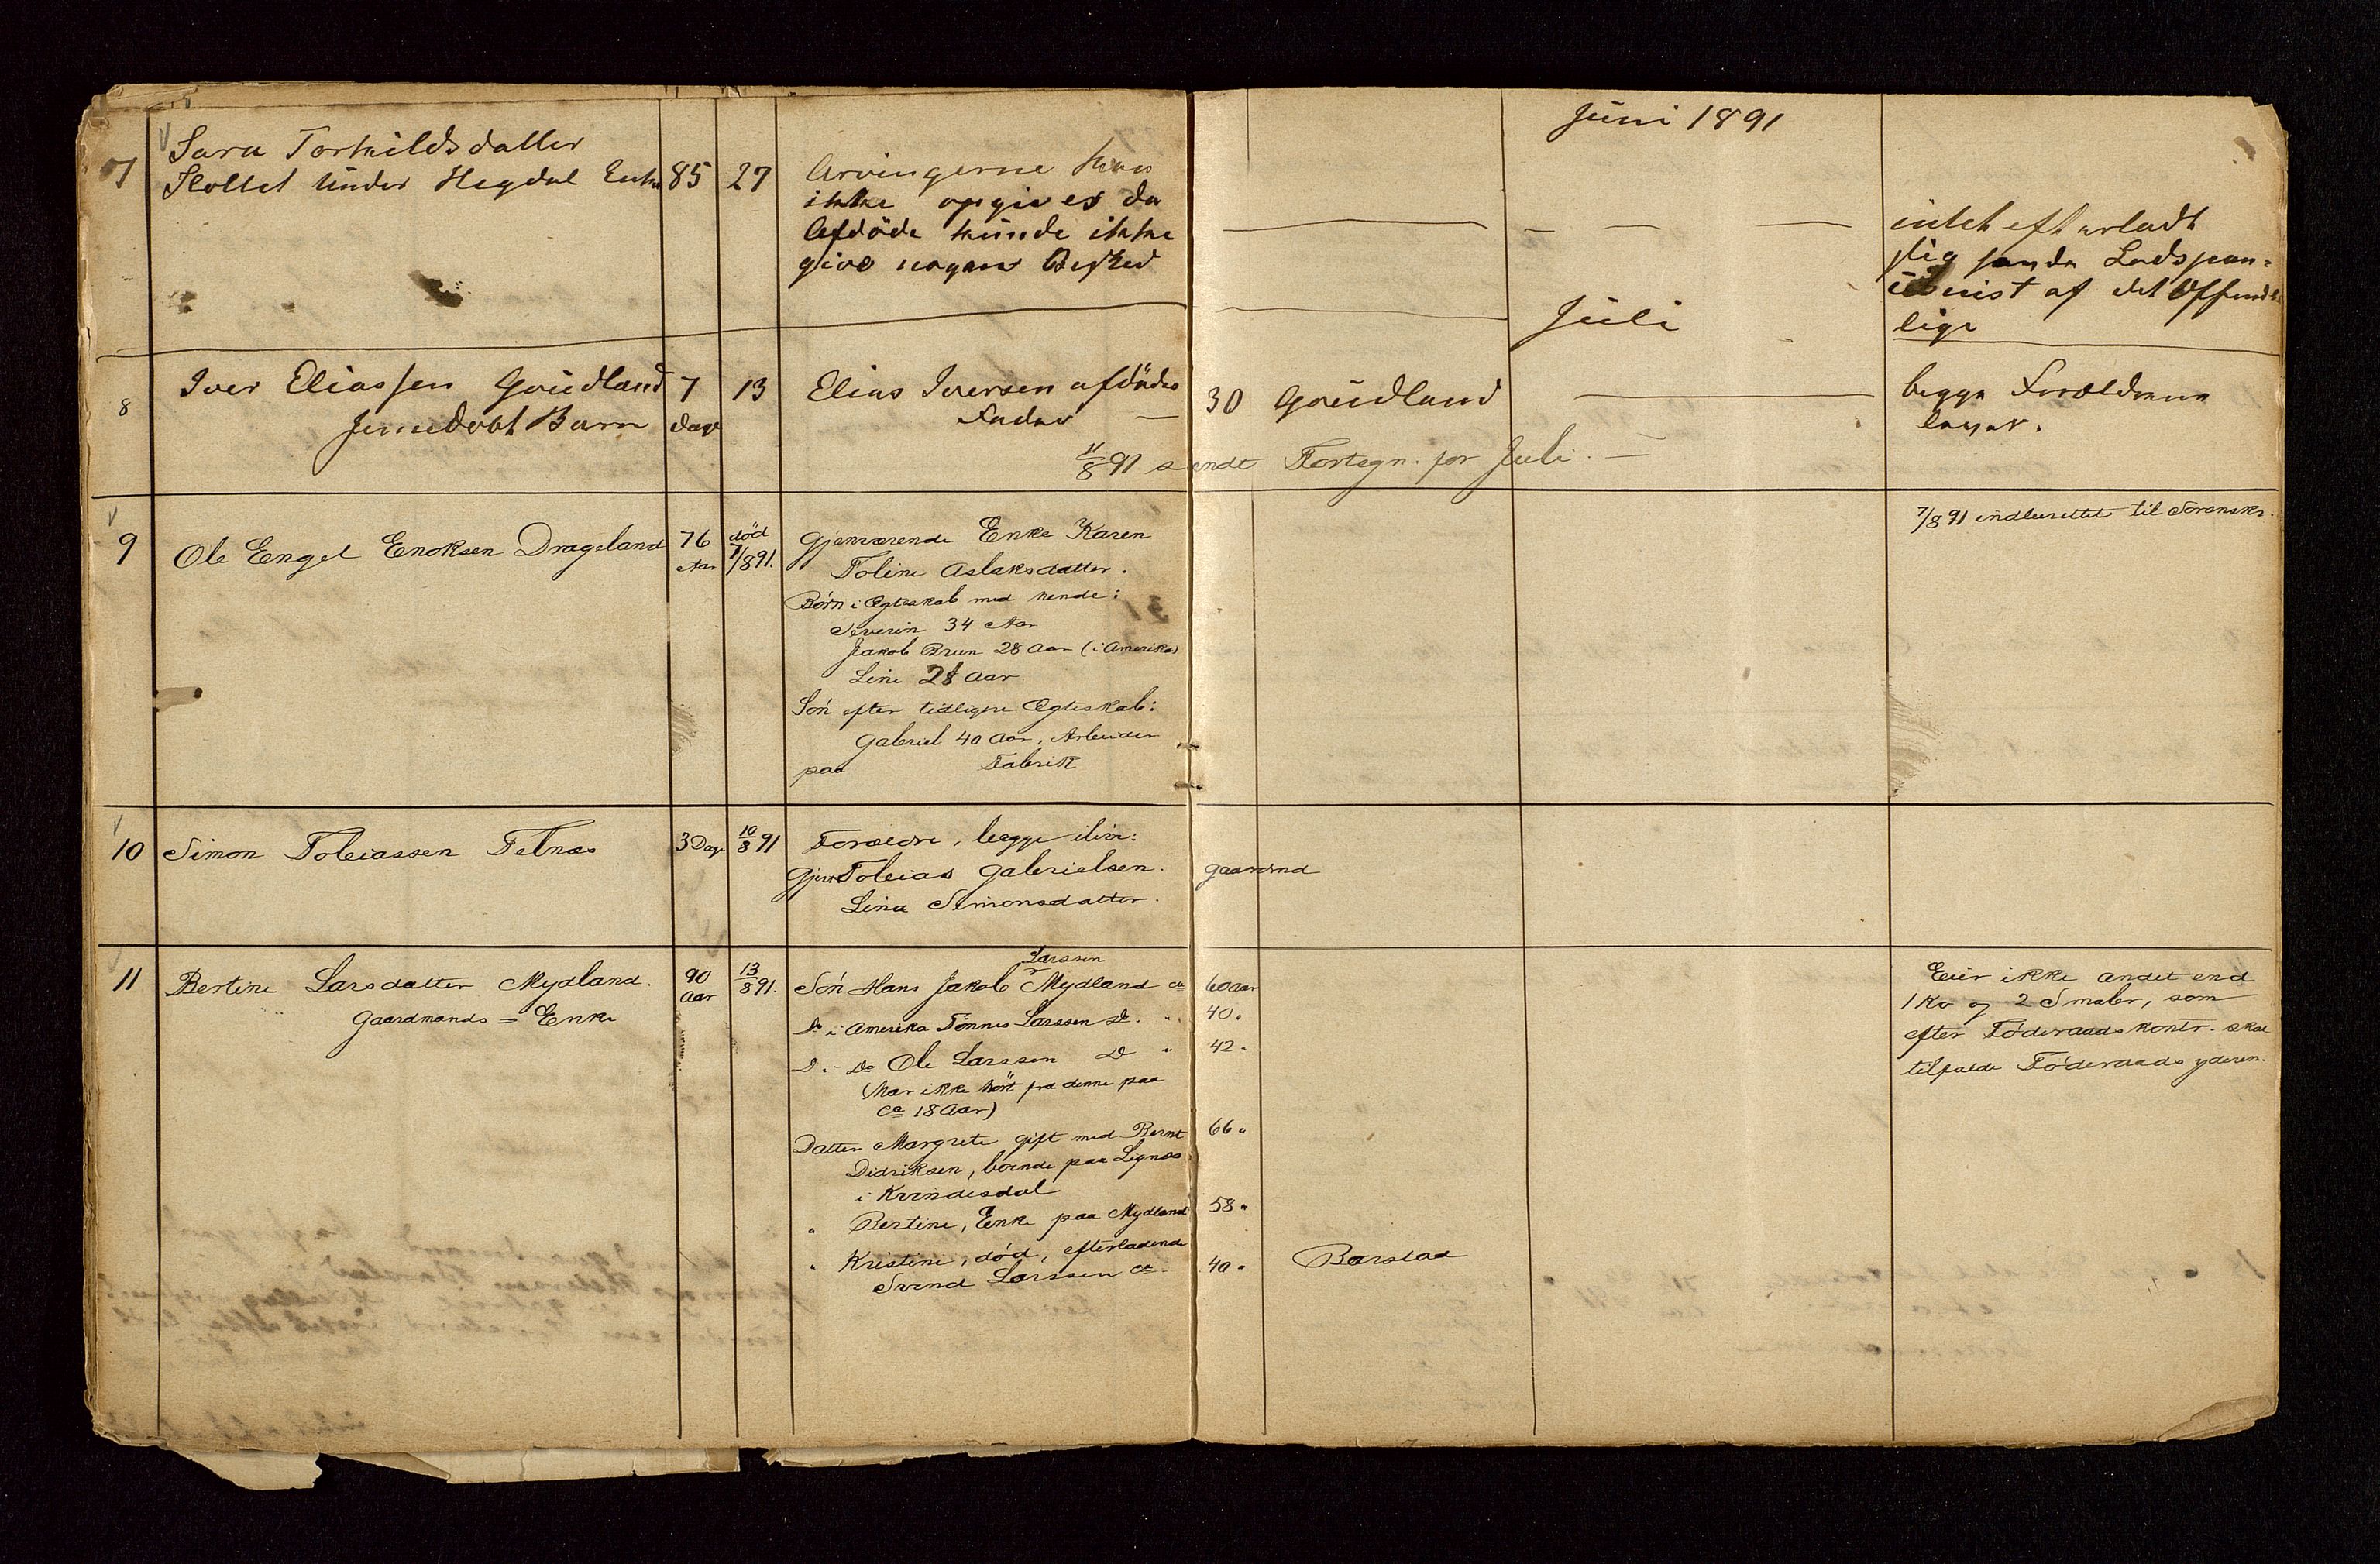 Juni 1891
7 Sara Torkildsdatter 85 27 Arvingerne kan
Slottet under Hegdal Enke ikke opgives da
Afdöde kunde ikke
give nogen Besked
intet efterladt
Ladspen=
af det Offendt=
lige
Juli
8 Iver Eliassen Goudland 7 13 Elias Iversen afdödes 30 Goudland begge Forældrene
Barn Dage Fader lever.
11/8 91 sendt Fortegn. for Juli.
9 Ole Engel Enoksen Drageland 76 Aar död 7/8 91. Gjenværende Enke Karen 7/8 91 indberettet til Sorenskr.
Toline Aslaksdatter.
Børn i Ægteskab med hende:
Severin 34 Aar
Jakob Brun 28 Aar (i Amerika)
Line 28 Aar
Søn efter tidligere Ægteskab:
Gabriel 40 Aar, Arbeider
paa Fabrik
10 Simon Tobiassen Felnæs 3 Dage 10/8 91 Forældre, begge ilive:
Tobias Gabrielsen. gaardmd
Lina Simonsdatter.
11 Bertine Larsdatter Mydland. 90 Aar 13/8 91. Søn Hans Jakob Larssen Mydland ca 60 Aar
Gaardmands=Enke
Do i Amerika Tønnes Larssen Do. " 40 "
D. - Do Ole Larssen Do " 42 "
(har ikke hört fra denne paa
ca 18 Aar)
Datter Margrete gift med Bernt 66 "
Didriksen, boende paa Lignæs
i Kvindesdal
" Bertine, Enke paa Mydland 58 "
" Kristine, död, efterladende
Svend Larssen ca. 40 " Barstad
Eier ikke andet end
1 Ko og 2 Smaler, som
efter Föderaadskontr. skal
tilfalde Föderaadsyderen.